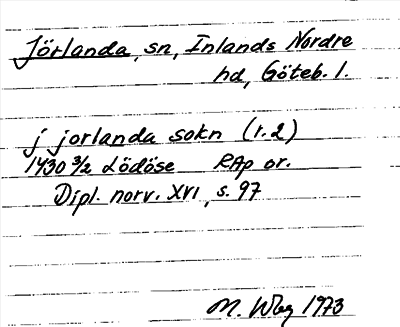 Jörlanda, sn, Inlands Nordre
hd, Göteb. l.
j jorlanda sokn (r. 2)
1430 3/2 Lödöse RAp or.
Dipl. norv. XVI, s. 97
M. Wbg 1973